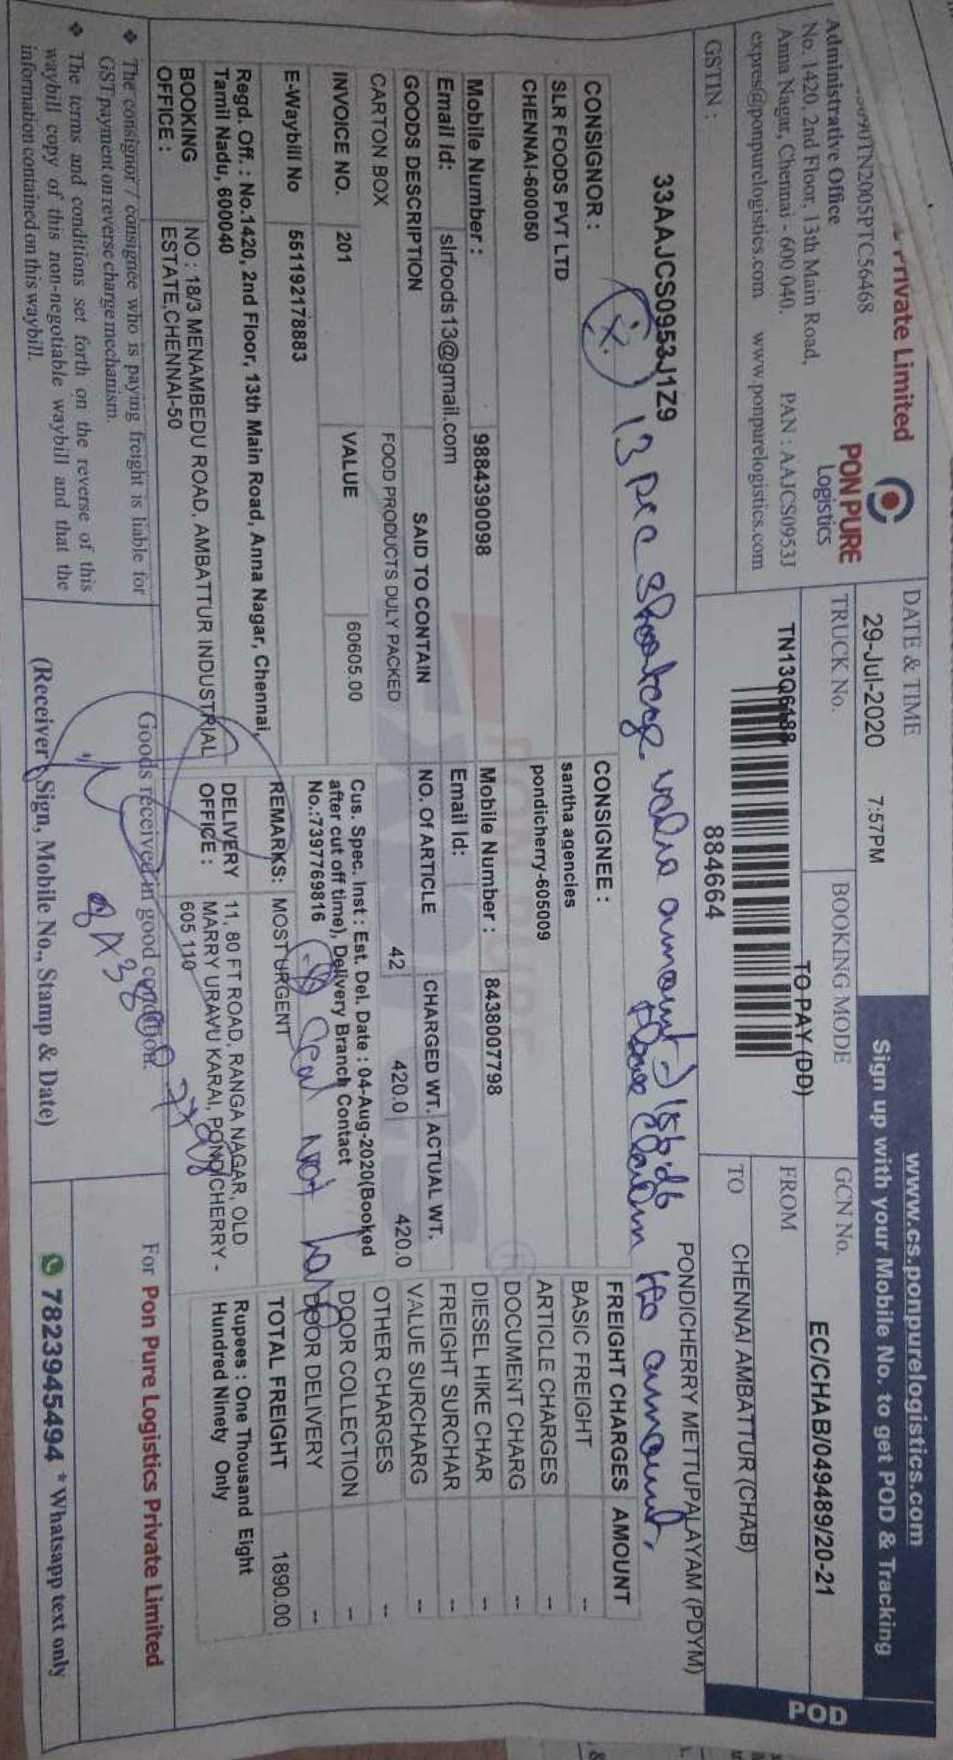 Private Limited
PON PURE
Logistics
Administrative Office
No. 1420, 2nd Floor, 13th Main Road,
Anna Nagar, Chennai - 600 040. PAN : AAJCS0953J
express@ponpurelogistics.com www.ponpurelogistics.com
GSTIN :
33AAJCS0953J1Z9
DATE & TIME
29-Jul-2020 7:57PM
TRUCK No.
TN13Q6188
BOOKING MODE
TO PAY (DD)
884664
www.cs.ponpurelogistics.com
Sign up with your Mobile No. to get POD & Tracking
GCN No. EC/CHAB/049489/20-21
FROM CHENNAI AMBATTUR (CHAB)
TO PONDICHERRY METTUPALAYAM (PDYM)
POD
13 pec shortage value amount
amount,
CONSIGNOR :
SLR FOODS PVT LTD
CHENNAI-600050
Mobile Number : 9884390098
Email Id: slrfoods13@gmail.com
GOODS DESCRIPTION SAID TO CONTAIN
CARTON BOX FOOD PRODUCTS DULY PACKED
INVOICE NO. 201 VALUE 60605.00
E-Waybill No 551192178883
Regd. Off. : No.1420, 2nd Floor, 13th Main Road, Anna Nagar, Chennai,
Tamil Nadu, 600040
BOOKING OFFICE : NO : 18/3 MENAMBEDU ROAD, AMBATTUR INDUSTRIAL
ESTATE,CHENNAI-50
CONSIGNEE :
santha agencies
pondicherry-605009
Mobile Number : 8438007798
Email Id:
NO. Of ARTICLE CHARGED WT. ACTUAL WT.
42 420.0 420.0
Cus. Spec. Inst : Est. Del. Date : 04-Aug-2020(Booked
after cut off time), Delivery Branch Contact
No.:7397769816
REMARKS: MOST URGENT
DELIVERY OFFICE : 11, 80 FT ROAD, RANGA NAGAR, OLD
MARRY URAVU KARAI, PONDICHERRY -
605 110
FREIGHT CHARGES AMOUNT
BASIC FREIGHT --
ARTICLE CHARGES --
DOCUMENT CHARG --
DIESEL HIKE CHAR --
FREIGHT SURCHAR --
VALUE SURCHARG --
OTHER CHARGES --
DOOR COLLECTION --
DOOR DELIVERY --
TOTAL FREIGHT 1890.00
Rupees : One Thousand Eight
Hundred Ninety Only
❖ The consignor / consignee who is paying freight is liable for
GST payment on reverse charge mechanism.
❖ The terms and conditions set forth on the reverse of this
waybill copy of this non-negotiable waybill and that the
information contained on this waybill.
Goods received in good condition.
(Receiver Sign, Mobile No., Stamp & Date)
For Pon Pure Logistics Private Limited
7823945494 *Whatsapp text only